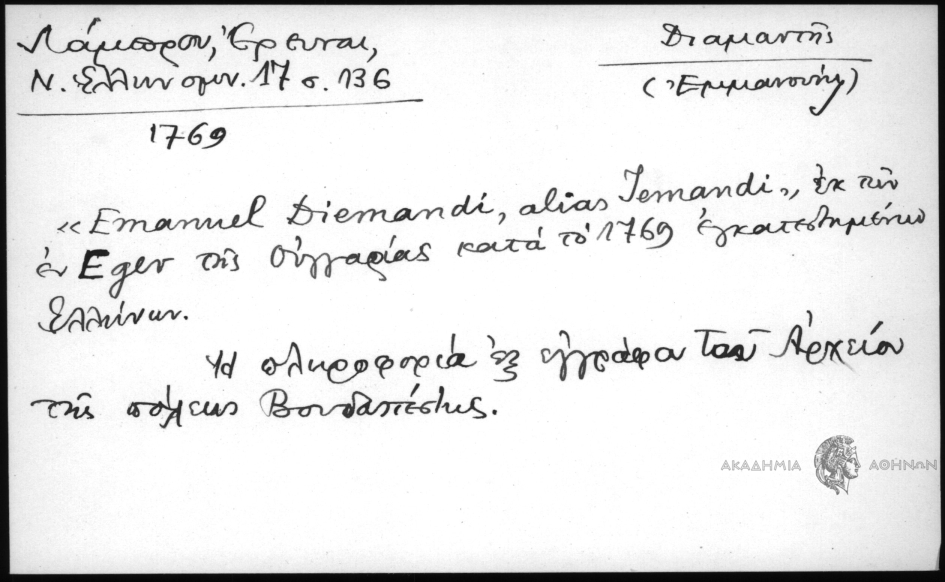 Λάμπρου, Ἔρευναι,
Ν. Ἑλληνομν. 17 σ. 136
1769
Διαμαντῆς
(Ἐμμανουὴλ)
«Emanuel Diemandi, alias Jemandi», ἐκ τῶν
ἐν Eger τῆς Οὑγγαρίας κατὰ τὸ 1769 ἐγκατεστημένων
Ἑλλήνων.
Ἡ πληροφορία ἐξ ἐγγράφου τοῦ Ἀρχείου
τῆς πόλεως Βουδαπέστης.
ΑΚΑΔΗΜΙΑ ΑΘΗΝΩΝ